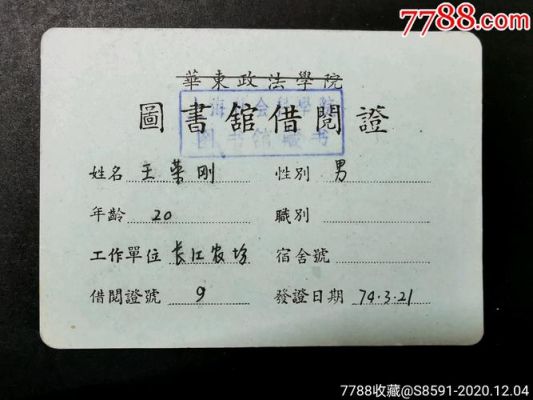 7788.com
華東政法學院
圖書館借閱證
姓名 王荣刚 性別 男
年齡 20 職別
工作單位 长江农场 宿舍號
借閱證號 9 發證日期 74.3.21
7788收藏@S8591-2020.12.04